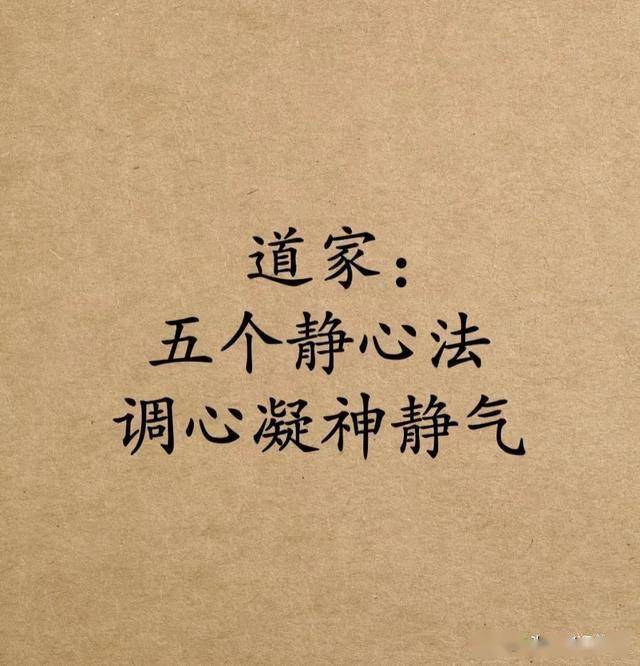 道家：
五个静心法
调心凝神静气